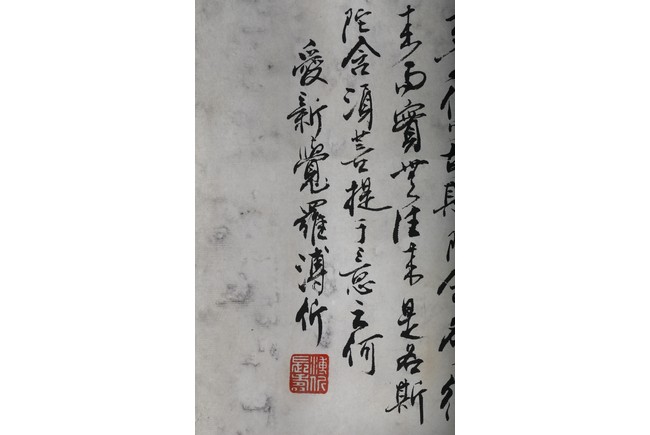 来而實無往来是名斯
陀含須菩提于意云何
愛新覺羅溥伒